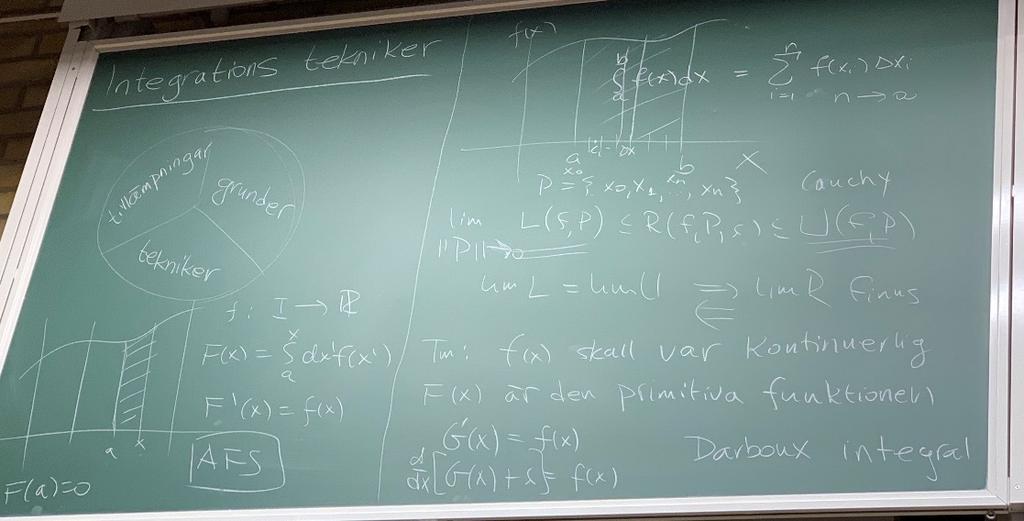 Integrations tekniker
tillämpningar
grunder
tekniker
f: I → ℝ
F(x) = ∫ₐˣ dx' f(x')
F'(x) = f(x)
AFS
a x
F(a)=0
f(x)
∫ₐᵇ f(x)dx = Σᵢ₌₁ⁿ f(xᵢ) Δxᵢ
n → ∞
a b x
x₀ xₙ
Δx
P = { x₀, x₁, ..., xₙ } Cauchy
lim L(f,P) ≤ R(f,P,s) ≤ U(f,P)
||P||→0
lim L = lim U ⇒ lim R finns
⇐
Tm: f(x) skall var kontinuerlig
F(x) är den primitiva funktionen
G'(x) = f(x)
Darboux integral
d/dx [G(x) + s] = f(x)